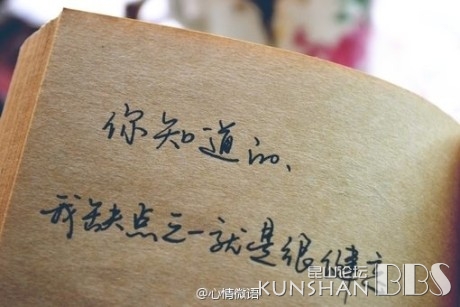 你知道的、
我缺点之一就是很健忘
昆山论坛
KUNSHAN BBS
@心情微语